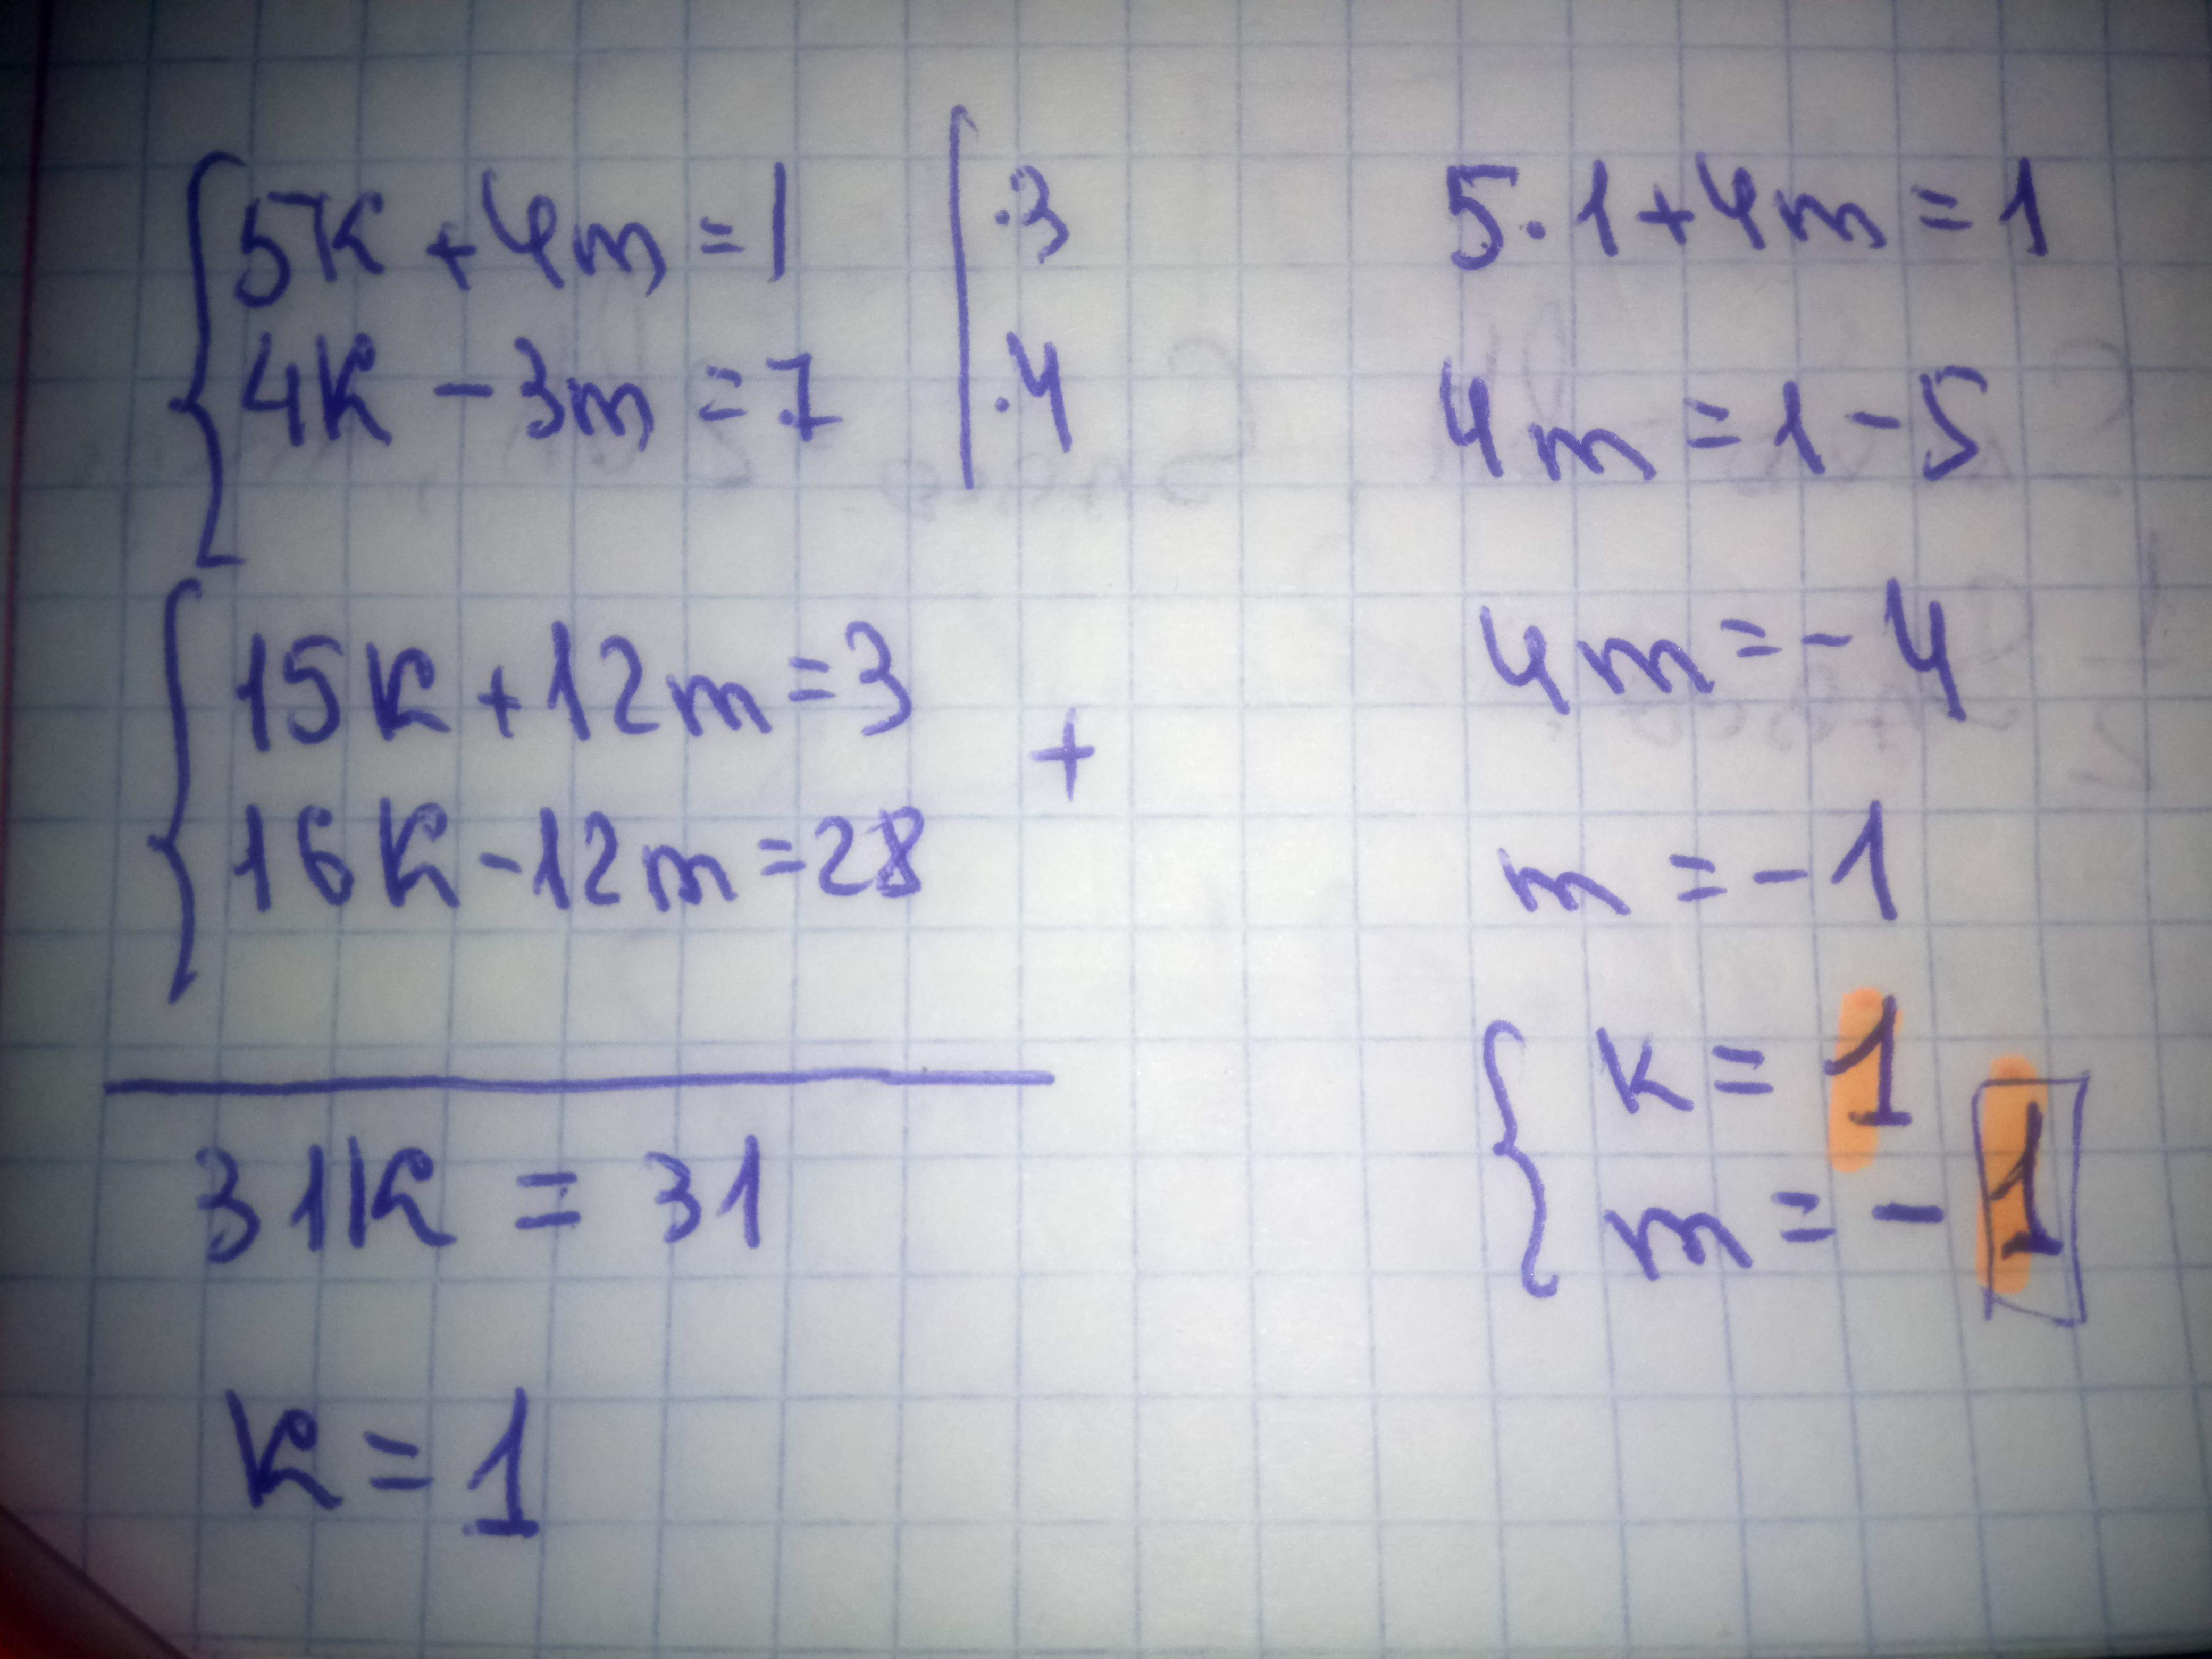 5k + 4m = 1 | ·3
4k - 3m = 7 | ·4
15k + 12m = 3
+
16k - 12m = 28
31k = 31
k = 1
5·1 + 4m = 1
4m = 1 - 5
4m = -4
m = -1
k = 1
m = -1